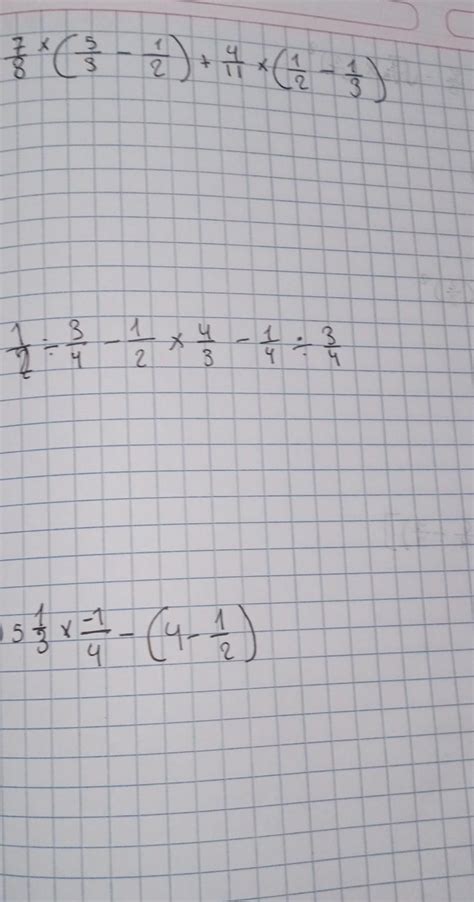 7/8 × (5/3 - 1/2) + 4/11 × (1/2 - 1/3)
1/2 ÷ 3/4 - 1/2 × 4/3 - 1/4 ÷ 3/4
5 1/3 × -1/4 - (4 - 1/2)